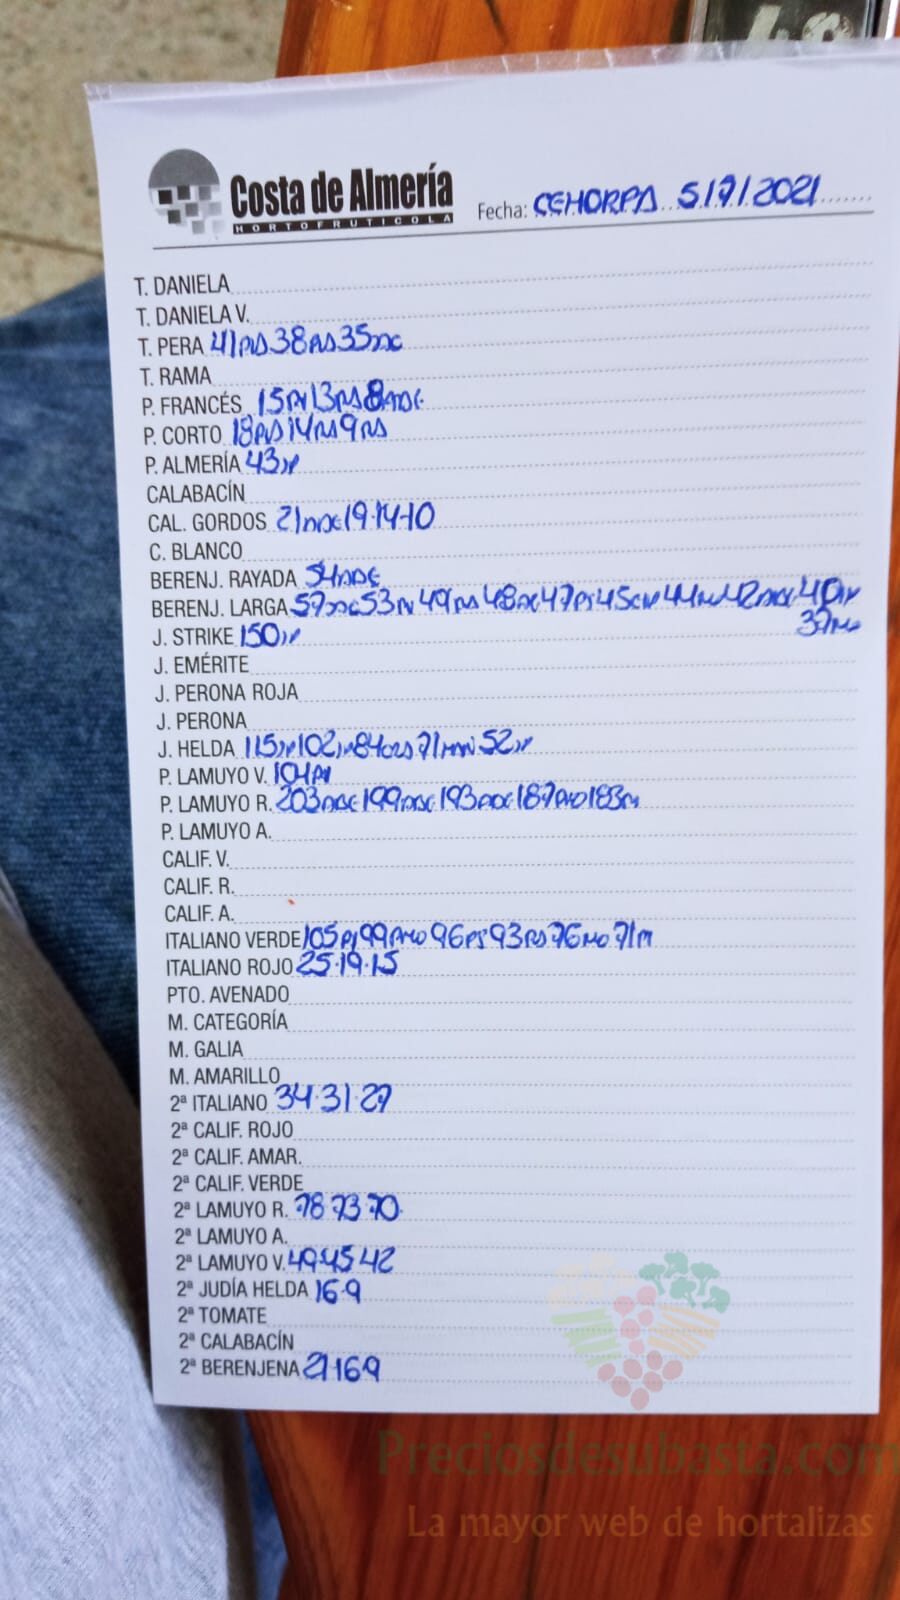 Costa de Almería
HORTOFRUTICOLA
Fecha: CEHORPA 5/7/2021
T. DANIELA
T. DANIELA V.
T. PERA 41 38 35
T. RAMA
P. FRANCÉS 15 13 8
P. CORTO 18 14 9
P. ALMERÍA 43
CALABACÍN
CAL. GORDOS 21 19·14·10
C. BLANCO
BERENJ. RAYADA 54
BERENJ. LARGA 57 53 49 48 47 45 44 42 40
37
J. STRIKE 150
J. EMÉRITE
J. PERONA ROJA
J. PERONA
J. HELDA 115 102 84 71 52
P. LAMUYO V. 104
P. LAMUYO R. 203 199 193 187 183
P. LAMUYO A.
CALIF. V.
CALIF. R.
CALIF. A.
ITALIANO VERDE 105 99 96 93 76 71
ITALIANO ROJO 25·19·15
PTO. AVENADO
M. CATEGORÍA
M. GALIA
M. AMARILLO
2ª ITALIANO 34·31·27
2ª CALIF. ROJO
2ª CALIF. AMAR.
2ª CALIF. VERDE
2ª LAMUYO R. 78·73·70
2ª LAMUYO A.
2ª LAMUYO V. 49·45·42
2ª JUDÍA HELDA 16·9
2ª TOMATE
2ª CALABACÍN
2ª BERENJENA 21·16·9
Preciosdesubasta.com
La mayor web de hortalizas